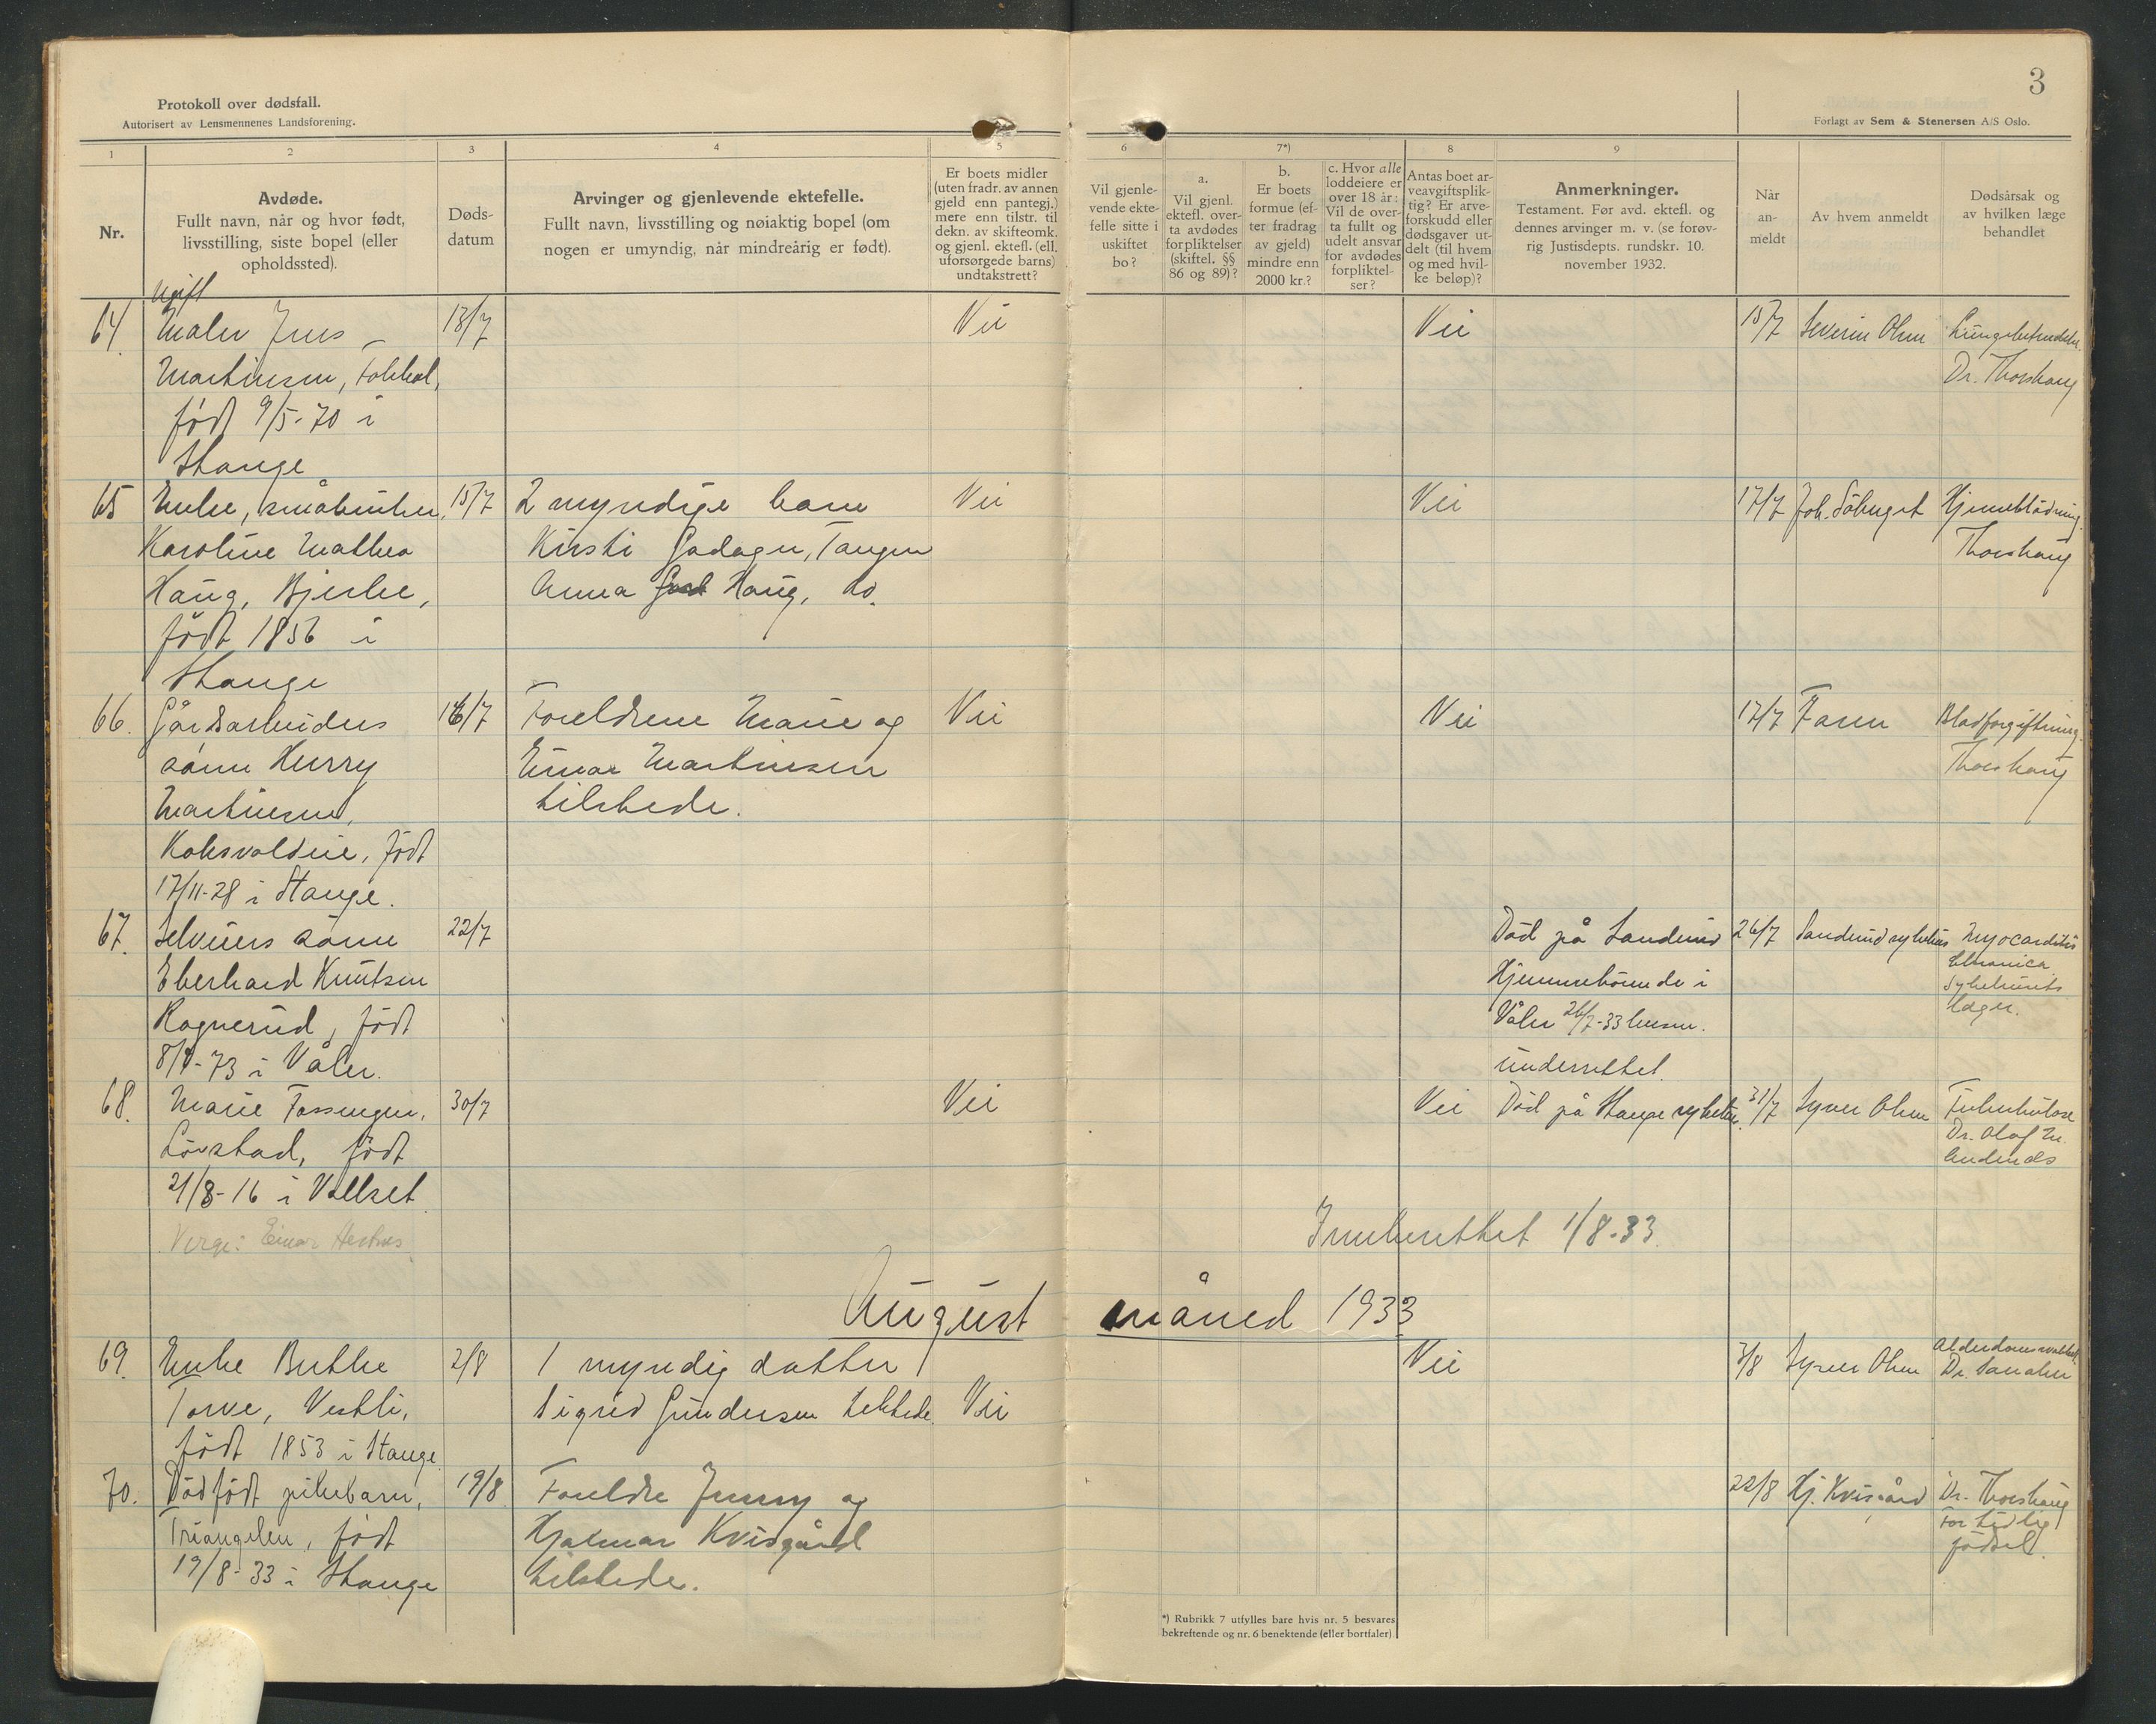 Protokoll over dødsfall.
Autorisert av Lensmennenes Landsforening.
3
Forlagt av Sem & Stenersen A/S Oslo.
1
2
3
4
5
6
7*)
8
9
Nr.
Avdøde.
Fullt navn, når og hvor født,
livsstilling, siste bopel (eller
opholdssted).
Døds-
datum
Arvinger og gjenlevende ektefelle.
Fullt navn, livsstilling og nøiaktig bopel (om
nogen er umyndig, når mindreårig er født).
Er boets midler
(uten fradr. av annen
gjeld enn pantegj.)
mere enn tilstr. til
dekn. av skifteomk.
og gjenl. ektefl. (ell.
uforsørgede barns)
undtakstrett?
Vil gjenle-
vende ekte-
felle sitte i
uskiftet
bo?
a.
Vil gjenl.
ektefl. over-
ta avdødes
forpliktelser
(skiftel. §§
86 og 89)?
b.
Er boets
formue (ef-
ter fradrag
av gjeld)
mindre enn
2000 kr.?
c. Hvor alle
loddeiere er
over 18 år:
Vil de over-
ta fullt og
udelt ansvar
for avdødes
forpliktel-
ser?
Antas boet ar-
veavgiftsplik-
tig? Er arve-
forskudd eller
dødsgaver ut-
delt (til hvem
og med hvil-
ke beløp)?
Anmerkninger.
Testament. Før avd. ektefl. og
dennes arvinger m. v. (se forøv-
rig Justisdepts. rundskr. 10.
november 1932.
Når
an-
meldt
Av hvem anmeldt
Dødsårsak og
av hvilken læge
behandlet
Ugift
64. Maler Jens 13/7 Nei Nei 15/7 Severin Olsen Lungebetendelse.
Martinsen,
Dr. Thorshaug
født 9/5-70 i
Stange
65 Enke, småbruker, 15/7 2 myndige barn Nei Nei 17/7 Joh. Hjerneblødning.
Karoline Mathea Kirsti Tangen Thorshaug
Haug, Bjerke, Anna Haug, do.
født 1856 i
Stange
66. Gårdsarbeiders 16/7 Foreldrene Marie og Nei Nei 17/7 Faren Blodforgiftning.
sønn Henry Einar Martinsen Thorshaug
Martinsen, tilstede.
født
17/11-28 i Stange.
67. Selveiers sønn 22/7 Død på Sanderud 26/7 Sanderud sykehus Myocarditis
Eberhard Knutsen Hjemmehørende i chronica
Sykehusets
Rognerud, født Våler 26/7-33 lensm. læger.
8/9-73 i Våler. underrettet.
68. Marie Fossengen, 30/7 Nei Nei Død på Stange sykehus. 31/7 Syver Olsen Tuberkulose
Løvstad, født Dr. Olaf M.
21/8-16 i Vallset
Verge: Einar Hestnes
Innberettet 1/8-33.
August måned 1933
69. Enke Berthe 2/8 1 myndig datter Nei 3/8 Syver Olsen Alderdomssvakhet.
Torve, Vestli, Sigrid Gundersen tilstede Nei
født 1853 i Stange
70. Dødfødt pikebarn, 19/8 Foreldre Jenny og 22/8 Hj. Kvisgård Dr. Thorshaug
Triangelen, født Hjalmar Kvisgård For tidlig
19/8-33 i Stange tilstede. fødsel.
*) Rubrikk 7 utfylles bare hvis nr. 5 besvares
bekreftende og nr. 6 benektende (eller bortfaler).